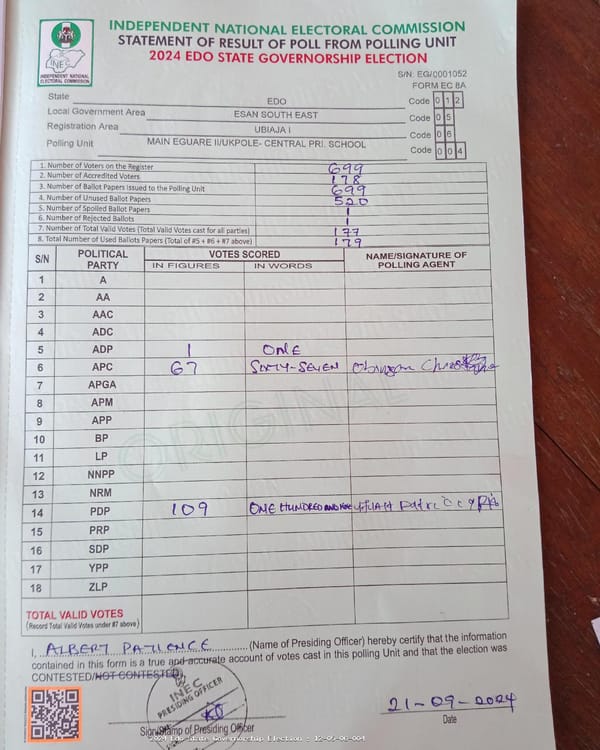 INDEPENDENT NATIONAL ELECTORAL COMMISSION
STATEMENT OF RESULT OF POLL FROM POLLING UNIT
2024 EDO STATE GOVERNORSHIP ELECTION
INEC
INDEPENDENT NATIONAL ELECTORAL COMMISSION
S/N: EG/0001052
FORM EC 8A
State EDO Code 0 1 2
Local Government Area ESAN SOUTH EAST Code 0 5
Registration Area UBIAJA I Code 0 6
Polling Unit MAIN EGUARE II/UKPOLE- CENTRAL PRI. SCHOOL Code 0 0 4
1. Number of Voters on the Register 699
2. Number of Accredited Voters 178
3. Number of Ballot Papers Issued to the Polling Unit 699
4. Number of Unused Ballot Papers 520
5. Number of Spoiled Ballot Papers 1
6. Number of Rejected Ballots 1
7. Number of Total Valid Votes (Total Valid Votes cast for all parties) 177
8. Total Number of Used Ballots Papers (Total of #5 + #6 + #7 above) 179
S/N POLITICAL PARTY VOTES SCORED NAME/SIGNATURE OF POLLING AGENT
IN FIGURES IN WORDS
1 A
2 AA
3 AAC
4 ADC
5 ADP 1 ONE
6 APC 67 SIXTY-SEVEN
7 APGA
8 APM
9 APP
10 BP
11 LP
12 NNPP
13 NRM
14 PDP 109 ONE HUNDRED AND NINE
15 PRP
16 SDP
17 YPP
18 ZLP
ORIGINAL
TOTAL VALID VOTES
(Record Total Valid Votes under #7 above)
I, ALBERT PATIENCE (Name of Presiding Officer) hereby certify that the information
contained in this form is a true and accurate account of votes cast in this polling Unit and that the election was
CONTESTED/NOT CONTESTED.
INEC
PRESIDING OFFICER
21-09-2024
Sign/Stamp of Presiding Officer Date
2024 Edo State Governorship Election - 12-05-06-004